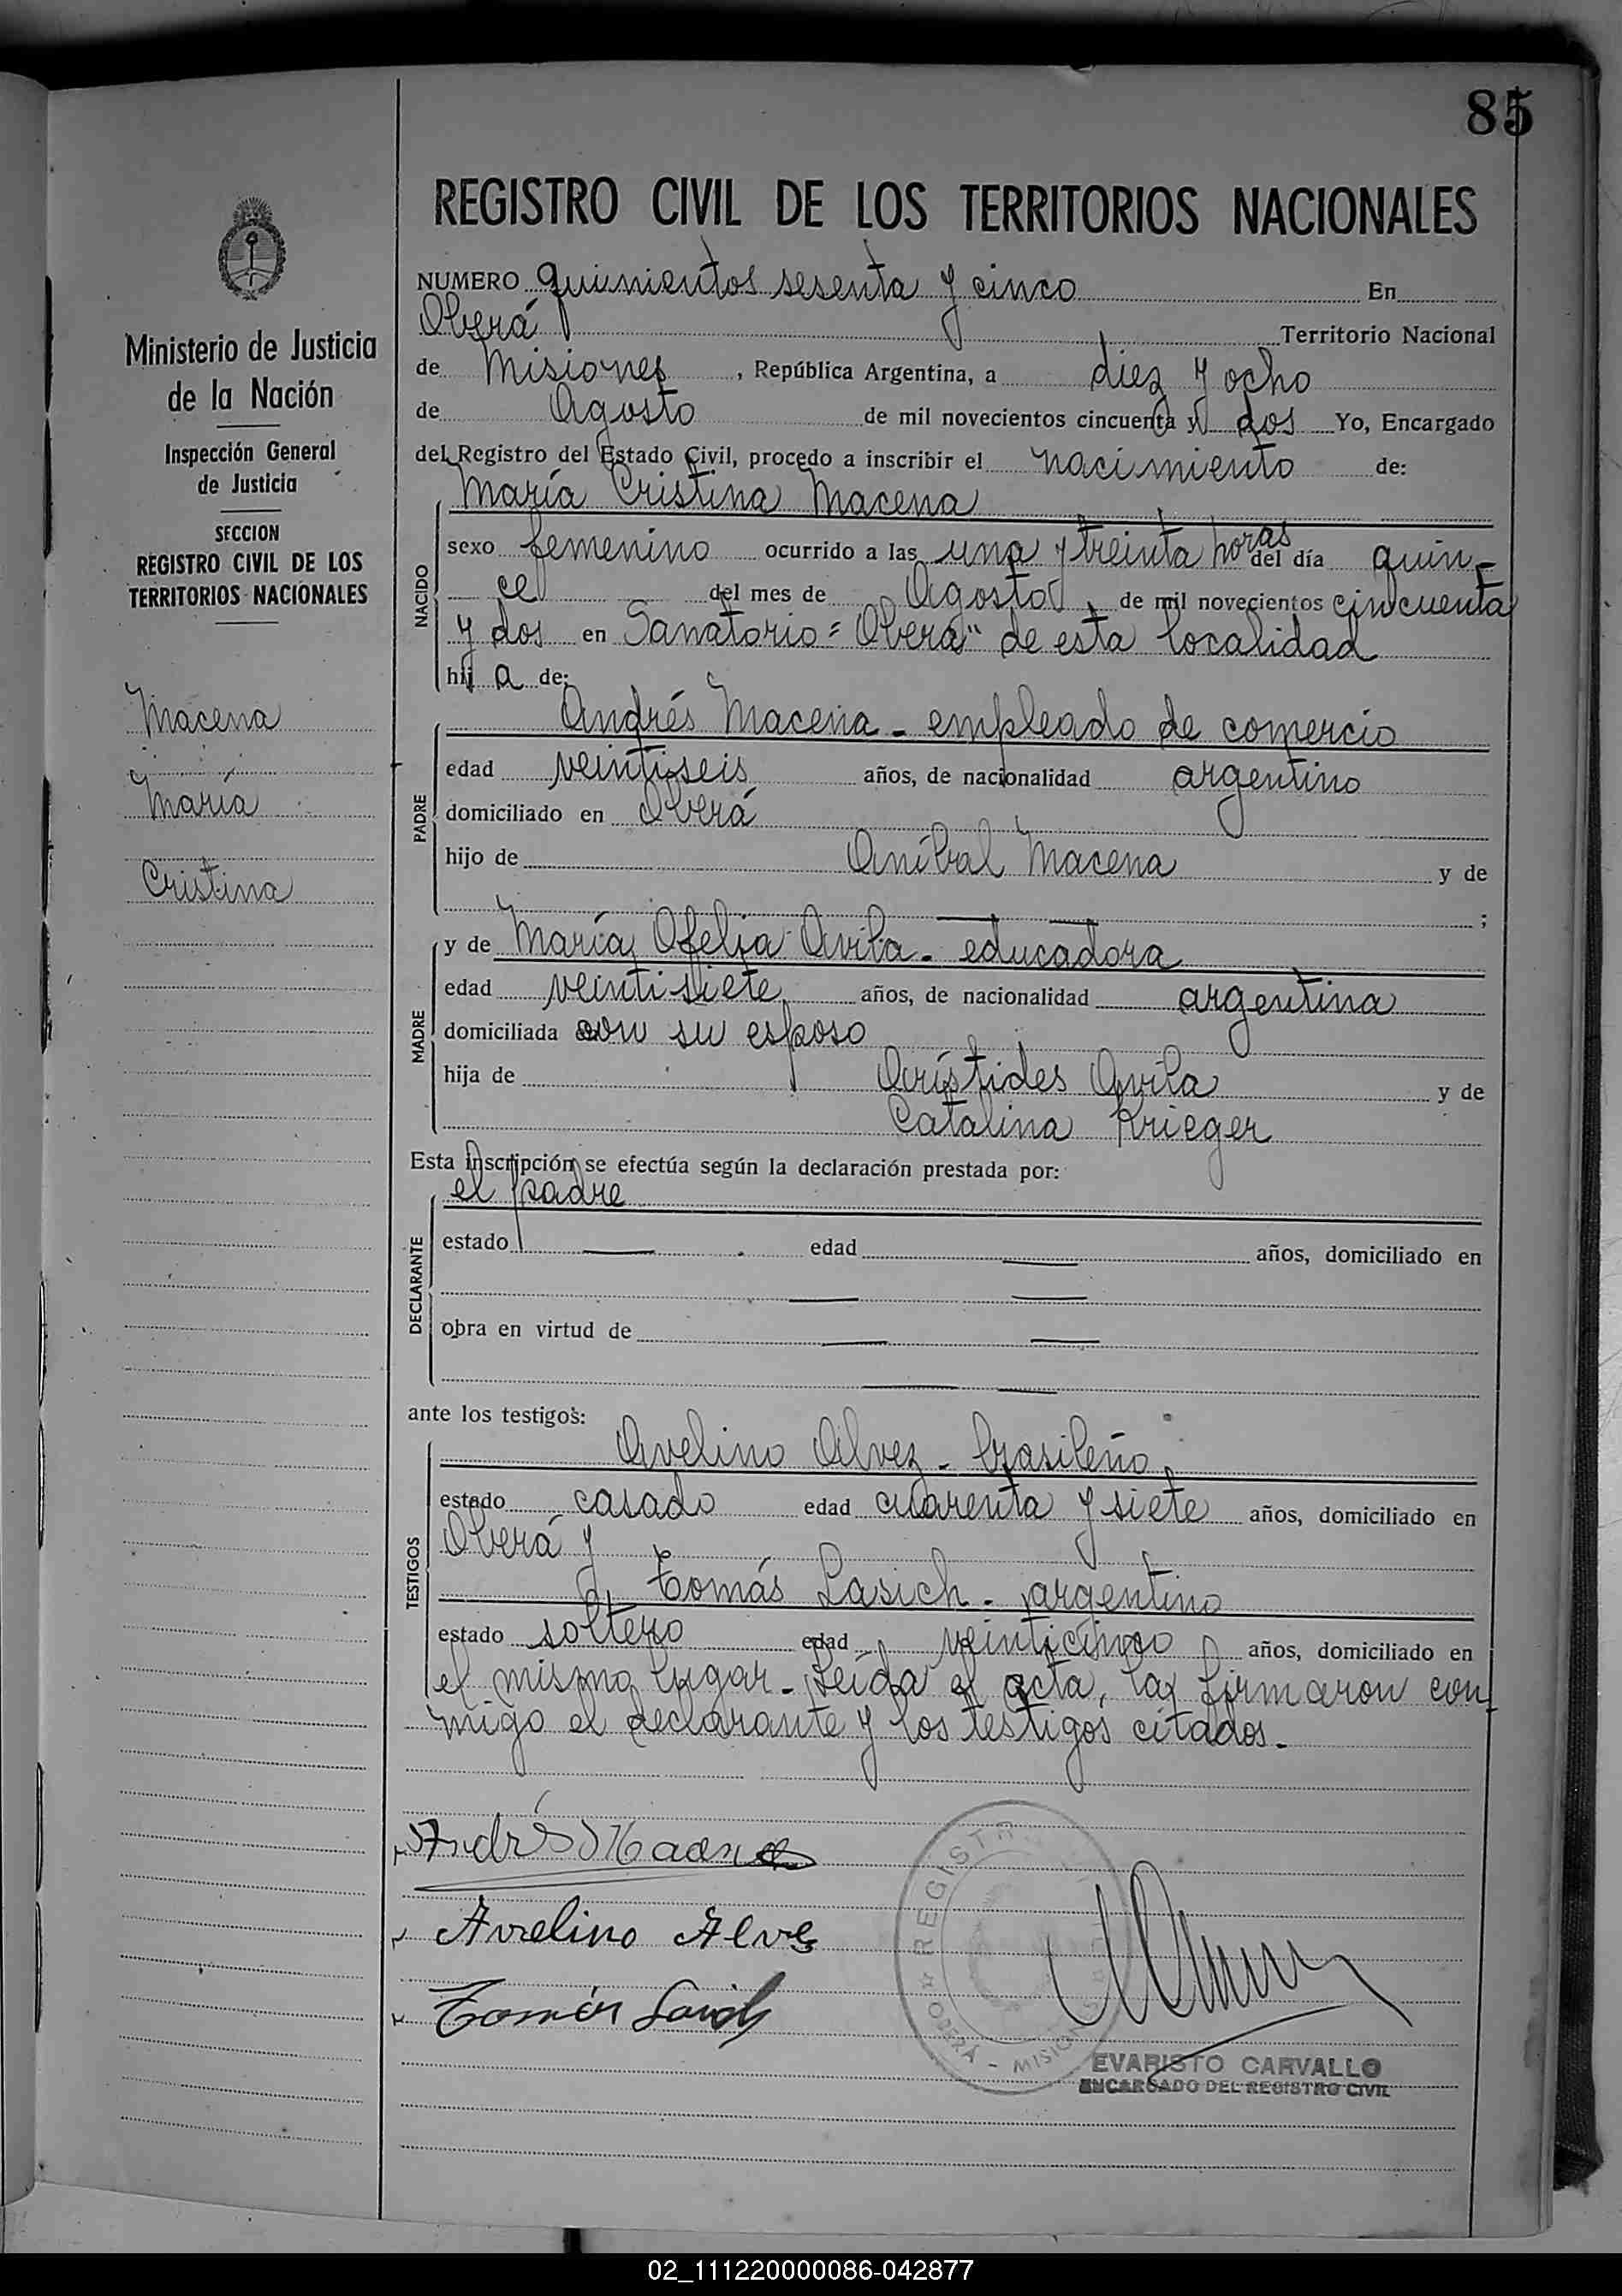 85
REGISTRO CIVIL DE LOS TERRITORIOS NACIONALES
Ministerio de Justicia
de la Nación
Inspección General
de Justicia
SECCION
REGISTRO CIVIL DE LOS
TERRITORIOS NACIONALES
Macena
María
Cristina
NUMERO quinientos sesenta y cinco En
Oberá Territorio Nacional
de Misiones, República Argentina, a diez y ocho
de Agosto de mil novecientos cincuenta y dos Yo, Encargado
del Registro del Estado Civil, procedo a inscribir el nacimiento de:
María Cristina Macena
NACIDO
sexo femenino ocurrido a las una y treinta horas del día quin-
ce del mes de Agosto de mil novecientos cincuenta
y dos en Sanatorio "Oberá" de esta localidad
hij a de:
Andrés Macena - empleado de comercio
PADRE
edad veintiseis años, de nacionalidad argentino
domiciliado en Oberá
hijo de Aníbal Macena y de
;
y de María Ofelia Avila - educadora
MADRE
edad veintisiete años, de nacionalidad argentina
domiciliada con su esposo
hija de Arístides Avila y de
Catalina Krieger
Esta inscripción se efectúa según la declaración prestada por:
el padre
DECLARANTE
estado edad años, domiciliado en
obra en virtud de
ante los testigos:
Avelino Alvez - brasileño,
TESTIGOS
estado casado edad cuarenta y siete años, domiciliado en
Oberá y
Tomás Lasich - argentino
estado soltero edad veinticinco años, domiciliado en
el mismo lugar - Leída el acta, la firmaron con-
migo el declarante y los testigos citados.-
Andrés Macena
Avelino Alvez
Tomás Lasich
REGISTR
OBERÁ - MISIONES
EVARISTO CARVALLO
ENCARGADO DEL REGISTRO CIVIL
02_111220000086-042877